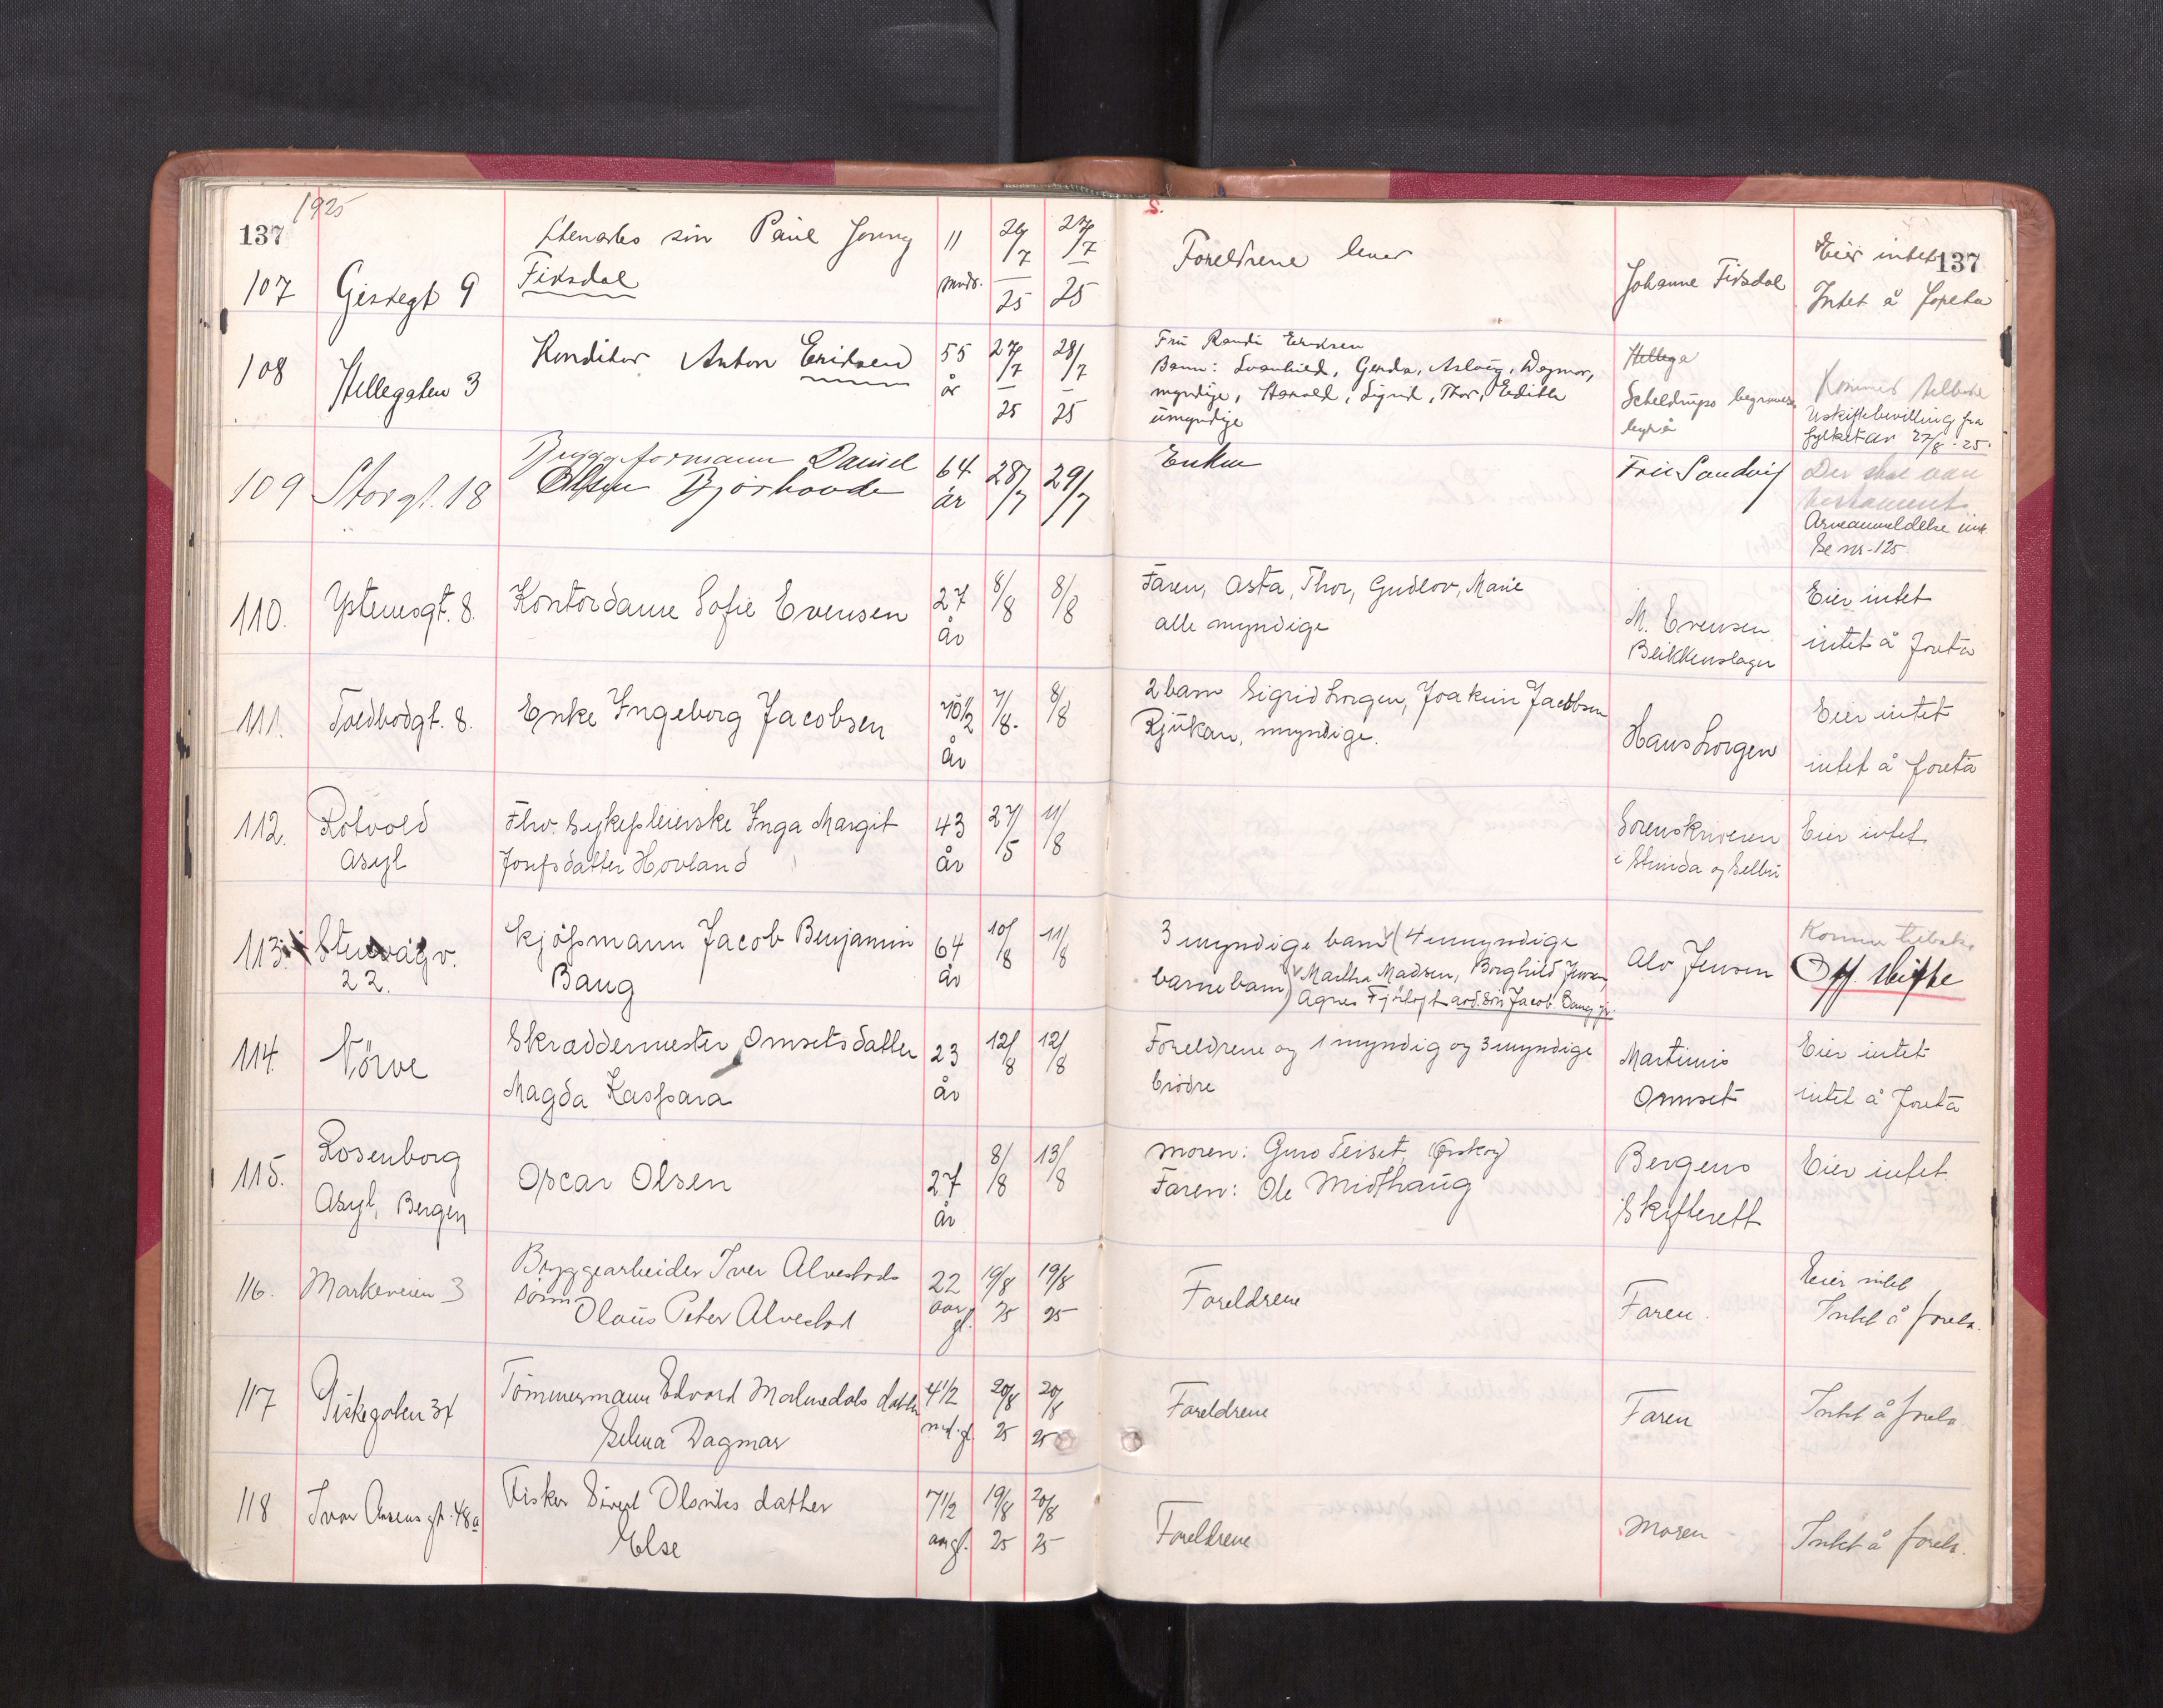 1925
137
S.
137
107 Giskegt 9 sön Paul Jonny 11 mndr. 26/7 25 27/7 25 Foreldrene lever Johanne Fiksdal Eier intet
Fiksdal Intet å foreta
108 Hellegaten 3 Konditor Anton Eriksen 55 år 27/7 25 28/7 25 Fru Randi Eriksen
Barn: Svanhild, Gerda, Aslaug, Dagmar,
myndige, Harald, Sigrid, Thor, Edith
umyndige
Hellega
Scheldrups begravelses
byrå
Kommer tilbake
Uskiftebevilling fra
fylket av 27/8-25.
109 Storgt. 18 Byggeformann Daniel
Olsen Bjørhovde 64 år 28/7 29/7 Enken Fru Sandvig Der skal være
testament
Arveanmeldelse
Se nr. 125
110. Ystenesgt. 8. Kontordame Sofie Evensen 27 år 8/8 8/8 Faren, Asta, Thor, Gudlov, Marie
alle myndige
M. Evensen
Blikkenslager
Eier intet
intet å foreta
111. Toldbodgt. 8. Enke Ingeborg Jacobsen 70 1/2 år 7/8. 8/8 2 barn Sigrid Lorgen, Joakim Jacobsen
Rjukan, myndige.
Hans Lorgen
Eier intet
intet å foreta
112. Rotvold
Asyl
Fhv. Sykepleierske Inga Margit
Josefsdatter Hovland
43 år 27/5 11/8
Sorenskriveren
i Strinda og Selbu
Eier intet
113. Stenvågv.
22.
Kjøpmann Jacob Benjamin
Baug
64 år 10/8 11/8
3 myndige barn (4 umyndige
barnebarn) Martha Madsen, Borghild Jensen,
Agnes Fjörtoft avd. sön Jacob Baug jr.
Alv Jensen
Kommer tilbake
Off. skifte
114. Nörve Skræddermester Omsetsdatter
Magda Kaspara
23 år 12/8 12/8
Foreldrene og 1 myndig og 3 myndige
brödre
Martinus
Omset
Eier intet
intet å foreta
115. Rosenborg
Asyl, Bergen
Oscar Olsen 27 år 8/8 13/8
Moren: Guro Teiset, (Ørskog)
Faren: Ole Midthaug
Bergens
Skifterett
Eier intet.
116. Markeveien 3 Bryggearbeider Iver Alvestads
sönn
Olaus Peter Alvestad
22 aar gl. 19/8 25 19/8 25
Foreldrene Faren.
Eier intet
Intet å foreta.
117 Giskegaten 34 Tömmermann Edvard Malmedals datter
Selma Dagmar
4 1/2 md. gl. 20/8 25 20/8 25
Foreldrene Faren Intet å foreta
118 Ivar Aasens gt. 48a Fisker Sivert Olsviks datter
Else
7 1/2 aar gl. 19/8 25 20/8 25
Foreldrene Moren - Intet å foreta.